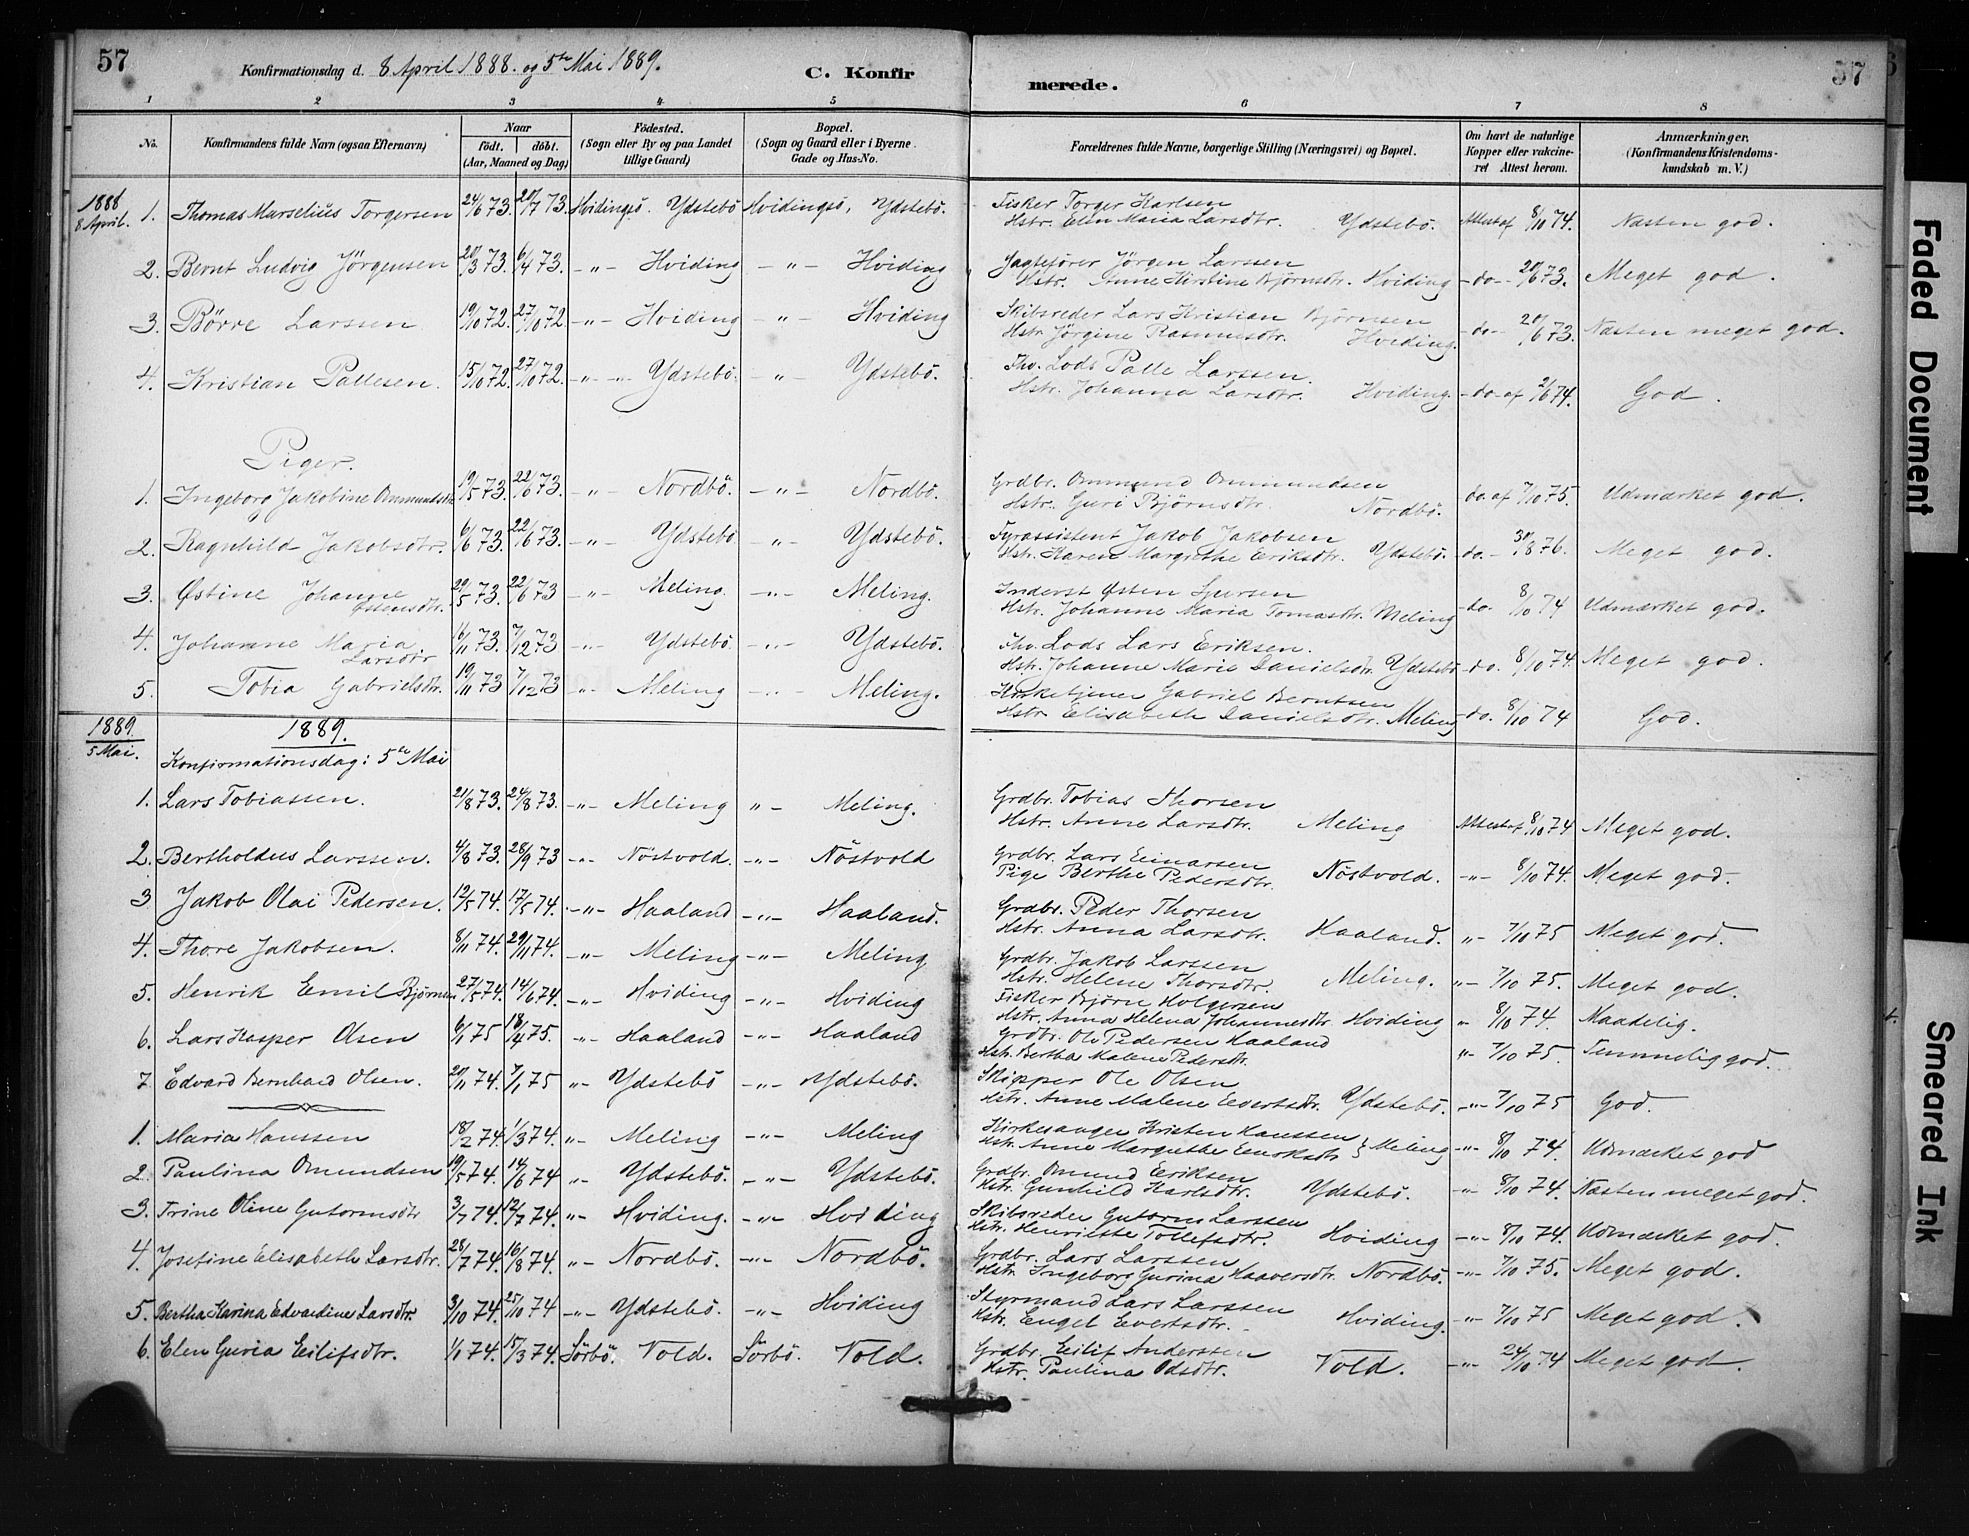 57
Konfirmationsdag d. 8 April 1888. og 5te Mai 1889.
C. Konfir
merede.
57
1 2 3 4 5 6 7 8
No.
Konfirmandens fulde Navn (ogsaa Efternavn)
Naar
födt. döbt.
(Aar, Maaned og Dag)
Födested.
(Sogn eller By og paa Landet
tillige Gaard)
Bopæl.
(Sogn og Gaard eller i Byerne
Gade og Hus-No.
Forældrenes fulde Navne, borgerlige Stilling (Næringsvei) og Bopæl.
Om havt de naturlige
Kopper eller vakcine-
ret Attest herom.
Anmærkninger.
(Konfirmandens Kristendoms-
kundskab m. V.)
1888
8 April.
1. Thomas Marselius Torgersen 24/6 73. 20/7 73. Hvidingsö. Ydstebö Hvidingsö, Ydstebö. Fisker Torger Karlsen
Hstr. Elen Maria Larsdtr. Ydstebö. Attest af 8/10 74. Næsten god.
2. Bernt Ludvig Jörgensen 20/3 73. 6/4 73. -"- Hviding -"- Hviding Jagtefører Jörgen Larssen
Hstr. Anne Kirstine Bjørnsdtr. Hviding -do- 20/6 73. Meget god.
3. Börre Larssen 19/10 72. 27/10 72. -"- Hviding -"- Hviding Skibsreder Lars Kristian Bjørnsen
Hstr. Jörgine Rasmusdtr. Hviding. -do- 20/6 73. Næsten meget god.
4. Kristian Pallesen. 15/10 72. 27/10 72. -"- -"- Ydstebö. -"- Ydstebö. Fhv. Lods Palle Larssen.
Hstr. Johanna Larsdtr. Hviding. -do- af 2/6 74. God.
Piger.
1. Ingeborg Jakobine Ommundsdtr 19/5 73. 22/6 73. -"- Nordbö. -"- Nordbö. Grdbr. Ommund Ommundsen
Hstr. Guri Bjørnsdtr. Nordbö. do af 7/10 75. Udmærket god.
2. Ragnhild Jakobsdtr. 6/6 73. 22/6 73. -"- Ydstebö -"- Ydstebö. Fyrassistent Jakob Jakobsen
Hstr. Karen Margrethe Eriksdtr. Ydstebö. do. - 30/8 76. Meget god.
3. Østine Johanne
Østensdtr. 20/5 73. 22/6 73 -"- Meling. -"- Meling. Inderst Østen Sjursen
Hstr. Johanne Maria Tomasdtr. Meling do. 8/10 74 Udmærket god.
4. Johanne Maria
Larsdtr 16/11 73. 7/12 73 -"- Ydstebö -"- Ydstebö. Fhv. Lods Lars Eriksen.
Hstr. Johanne Marie Danielsdtr Ydstebö do. 8/10 74. Meget god.
5. Tobia Gabrielsdtr. 19/11 73 7/12 73 -"- Meling -"- Meling. Kirketjener Gabriel Berntsen
Hstr. Elisabeth Danielsdtr. Meling do. 8/10 74 God.
1889
5 Mai.
1889.
Konfirmationsdag: 5te Mai
1. Lars Tobiassen. 21/8 73. 24/8 73. -"- Meling -"- Meling. Grdbr. Tobias Thorsen
Hstr. Anne Larsdtr. Meling Attest af 8/10 74 Meget god.
2. Bertholdus Larssen. 4/8 73. 28/9 73 -"- Nöstvold. -"- Nöstvold Grdbr. Lars Einarsen
Pige Berthe Pedersdtr. Nöstvold. -"- 8/10 74. Meget god.
3. Jakob Olai Pedersen. 12/5 74. 17/5 74. -"- Haaland -"- Haaland. Grdbr. Peder Thorsen
Hstr. Anna Larsdtr. Haaland. " 7/10 75 Meget god.
4. Thore Jakobsen. 8/11 74. 29/11 74. -"- Meling -"- Meling Grdbr. Jakob Larssen
Hstr. Helene Thorsdtr. Meling. -"- 7/10 75. Meget god.
5. Henrik Emil Bjørnsen 27/5 74. 14/6 74. -"- Hviding -"- Hviding Fisker Bjørn Holgersen
Hstr. Anna Helena Johannesdtr. Hviding " 8/10 74. Maadelig.
6. Lars Kasper Olsen 6/1 75 18/4 75. -"- Haaland -"- Haaland Grdbr. Ole Pedersen Haaland
Hstr. Bertha Malene Pedersdtr. " 7/10 75. Temmelig god.
7. Edvard Bernhard Olsen. 20/11 74. 7/1 75 -"- Ydstebö -"- Ydstebö. Skipper Ole Olsen
Hstr. Anne Malene Evertsdtr. Ydstebö. -"- 7/10 75 God.
1. Maria Hanssen 18/2 74. 1/3 74. -"- Meling -"- Meling Kirkesanger Kristen Hanssen
Hstr. Anne Margrethe Eeriksdtr } Meling -"- 8/10 74. Udmærket god
2. Paulina Omundsen 19/5 74. 14/6 74 " Ydstebö. -"- Ydstebö. Grdbr. Omund Eriksen
Hstr. Gunhild Karlsdtr. Ydstebö. -"- 8/10 74. Næsten meget god.
3. Trine Oline Gutormsdtr 3/7 74. 12/7 74. -"- Hviding. -"- Hviding Skibsreder Gutorm Larssen
Hstr. Henriette Tollefsdtr. Hviding -"- 8/10 74. Udmærket god.
4. Josefine Elisabeth Larsdtr. 28/7 74. 16/8 74. -"- Nordbö. -"- Nordbö. Grdbr. Lars Larssen
Hstr. Ingeborg Gurina Haaversdtr. Nordbö. -"- 7/10 75. Meget god.
5. Bertha Karina Edvardine Larsdtr. 3/10 74. 25/10 74 -"- Ydstebö. -"- Hviding Styrmand Lars Larssen
Hstr. Engel Evertsdtr. Hviding. -"- 7/10 75 Meget god.
6. Elen Guria Eilifsdtr. 1/1 74. 15/3 74. Sörbö. Vold. Sörbö. Vold. Grdbr. Eilif Anderssen
Hstr. Paulina Odsdtr. Vold. -"- 24/10 74 Meget god.
Faded Document
Smeared Ink